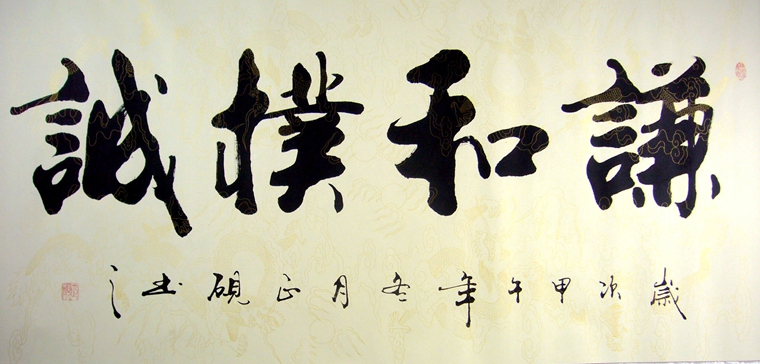 謙和樸誠
歲次甲午年冬月正硯书之